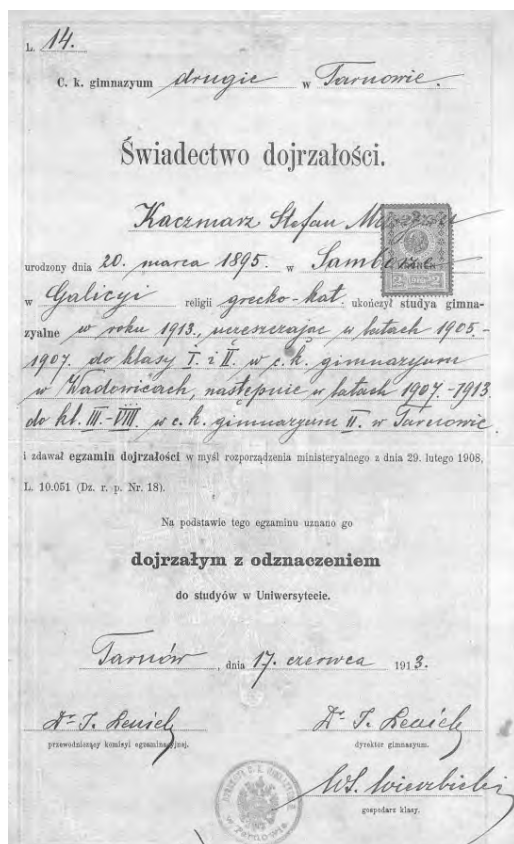 L. 14.
C. k. gimnazyum drugie w Tarnowie.
Świadectwo dojrzałości.
Kaczmarz Stefan
urodzony dnia 20. marca 1895. w Samborze
w Galicyi religii grecko-kat. ukończył studya gimna-
zyalne w roku 1913., uczęszczając w latach 1905.-
1907. do klasy I. i II. w c. k. gimnazyum
w Wadowicach, następnie w latach 1907.-1913.
do kl. III.-VIII. w c. k. gimnazyum II. w Tarnowie.
i zdawał egzamin dojrzałości w myśl rozporządzenia ministeryalnego z dnia 29. lutego 1908,
L. 10.051 (Dz. r. p. Nr. 18).
Na podstawie tego egzaminu uznano go
dojrzałym z odznaczeniem
do studyów w Uniwersytecie.
Tarnów, dnia 17. czerwca 1913.
Dr J. Dr J.
przewodniczący komisyi egzaminacyjnej. dyrektor gimnazyum.
gospodarz klasy.